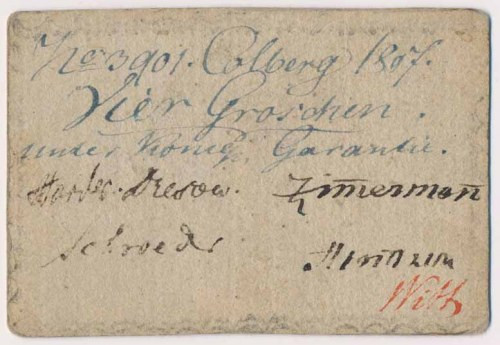 No 3901. Colberg 1807.
Vier Groschen.
unter Königl. Garantie.
Dresow. Zimmerman
Schroeder
Witt